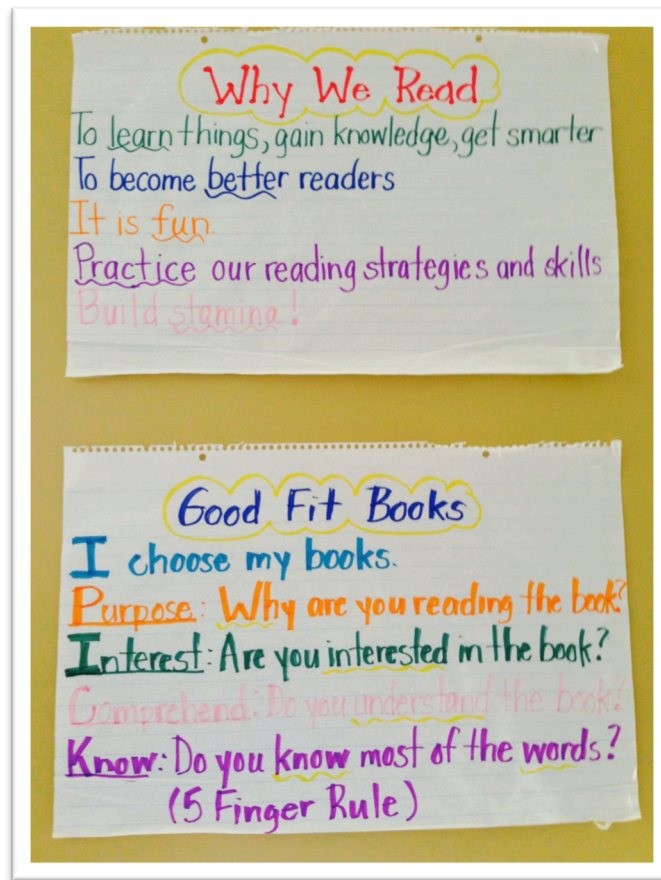 Why We Read
To learn things, gain knowledge, get smarter
To become better readers
It is fun.
Practice our reading strategies and skills
Build stamina!
Good Fit Books
I choose my books.
Purpose: Why are you reading the book?
Interest: Are you interested in the book?
Comprehend: Do you understand the book?
Know: Do you know most of the words?
(5 Finger Rule)